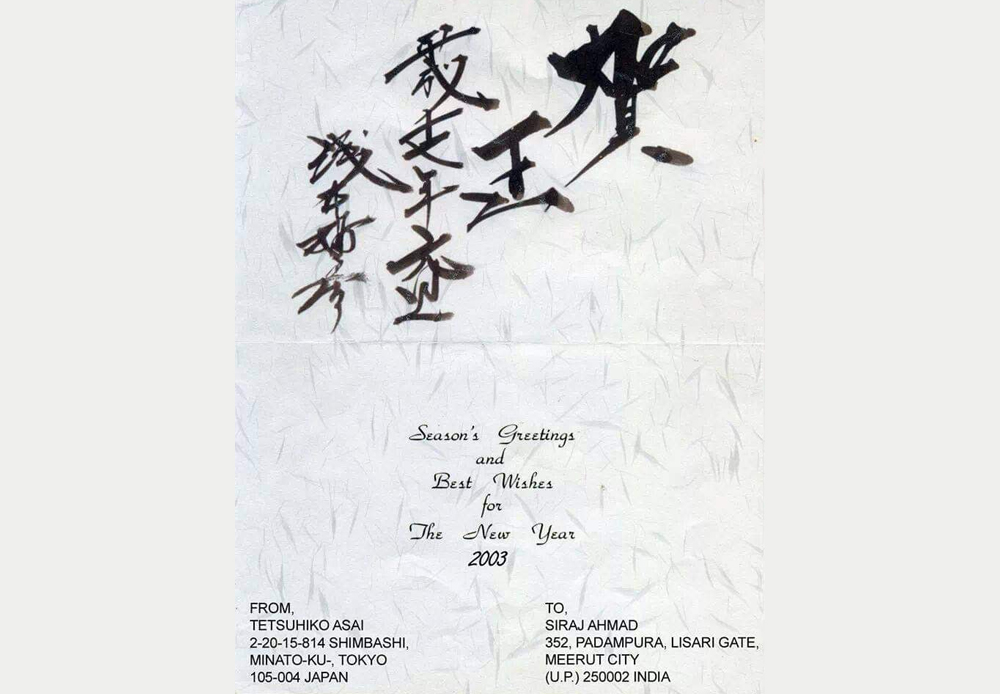 賀正
浅井哲彦
Season's Greetings
and
Best Wishes
for
The New Year
2003
FROM,
TETSUHIKO ASAI
2-20-15-814 SHIMBASHI,
MINATO-KU-, TOKYO
105-004 JAPAN
TO,
SIRAJ AHMAD
352, PADAMPURA, LISARI GATE,
MEERUT CITY
(U.P.) 250002 INDIA